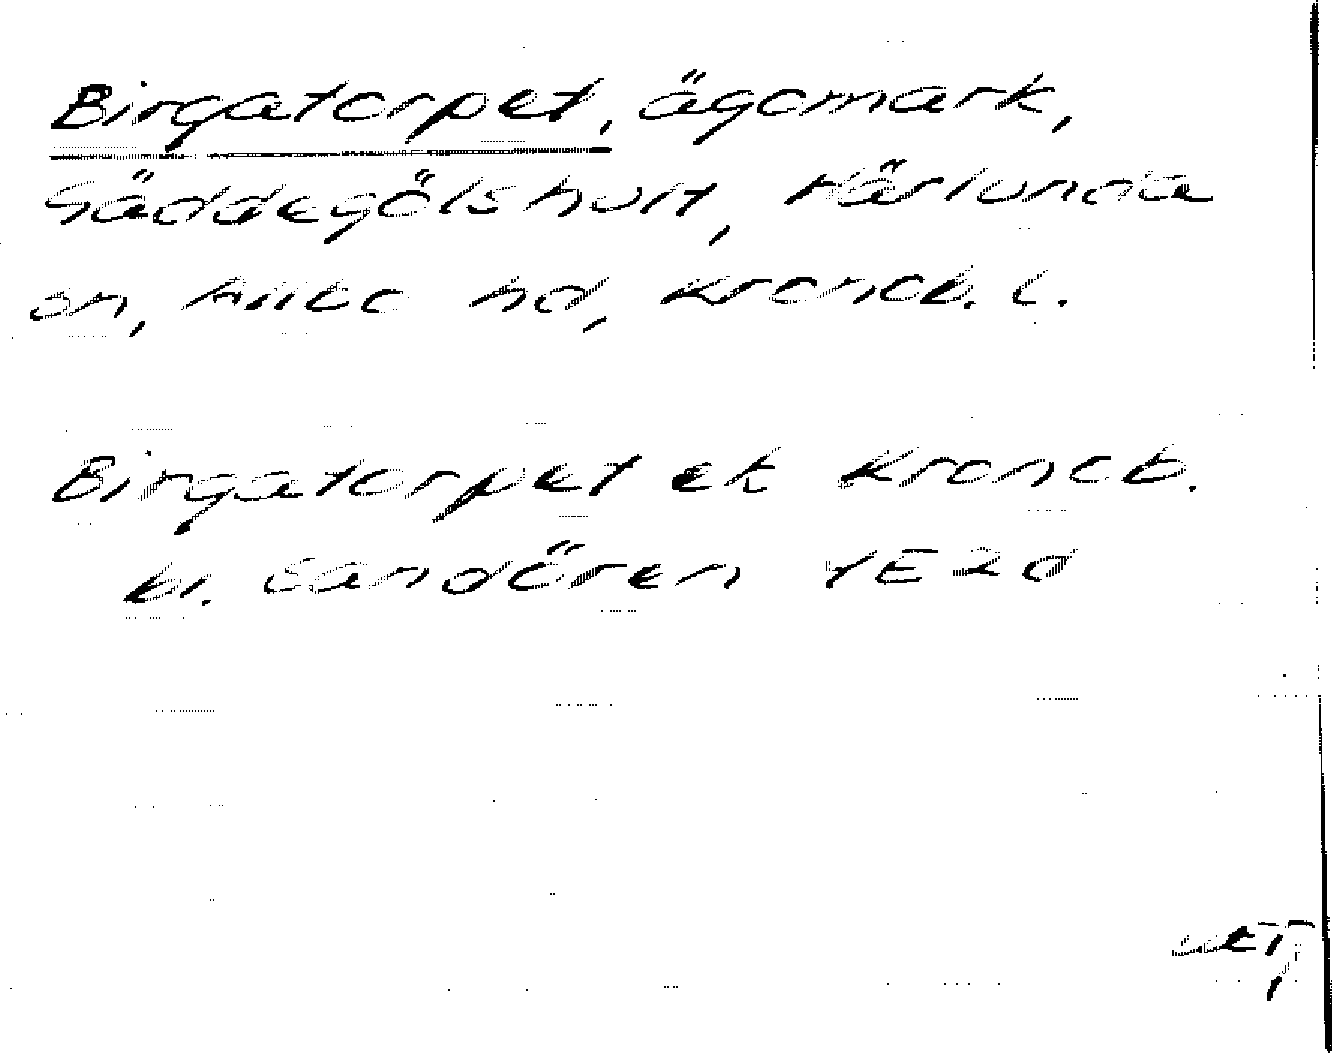 Birgatorpet, ägomark,
Säddegölshult, Härlunda
sn, Allbo hd, Kronob. l.
Birgatorpet ek Kronob.
bl. Sandören 1E2d